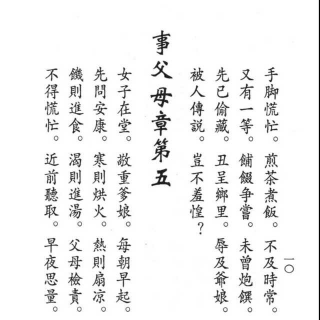 一〇
手脚慌忙。煎茶煮飯。不及時常。
又有一等。餔餟爭嘗。未曾炮饌。
先已偷藏。丑呈鄉里。辱及爺娘。
被人傳說。豈不羞惶？
事父母章第五
女子在堂。敬重爹娘。每朝早起。
先問安康。寒則烘火。熱則扇涼。
饑則進食。渴則進湯。父母檢責。
不得慌忙。近前聽取。早夜思量。